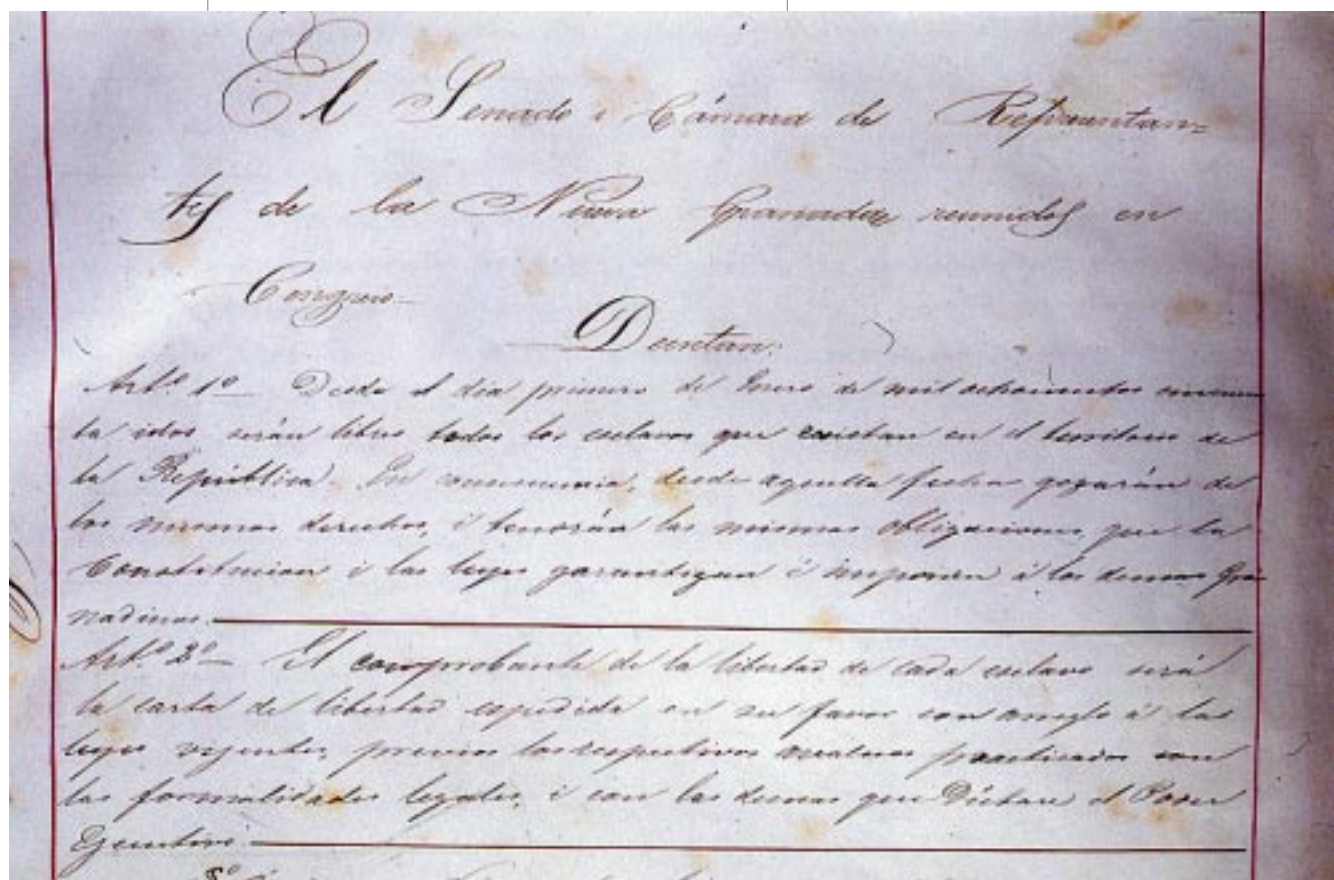 El Senado i Cámara de Representan=
tes de la Nueva Granada reunidos en
Congreso
Decretan:
Art.º 1º Desde el dia primero de Enero de mil ochocientos cincuen
ta idos serán libres todos los esclavos que existan en el territorio de
la República. En consecuencia, desde aquella fecha gozarán de
los mismos derechos, i tendrán las mismas obligaciones que la
Constitucion i las leyes garantizan é imponen á los demas Gra
nadinos.
Art.º 2º El comprobante de la libertad de cada esclavo será
la carta de libertad espedida en su favor con arreglo á las
leyes vijentes, previos los respectivos avaluos practicados con
las formalidades legales, i con las demas que Dictare el Poder
Ejecutivo